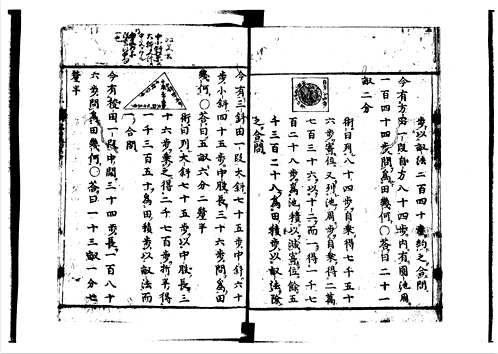 步以畝法二百四十步約之合問
今有方田一段自方八十四步内有圓池周
一百四十四步問爲田幾何○荅曰二十一
畝二分
術曰列八十四步自乗得七千五十
六步寄位又列池周步自乗得二萬
七百三十六以十二而一得一千七
百二十八步爲池積以減寄位餘五
千三百二十八爲田積步以畝法除
之合問
今有三斜田一段大斜七十五步中斜六十
步小斜四十五步中股長三十六步問爲田
幾何○荅曰五畝六分二釐半
術曰列大斜七十五步以中股長三
十六步乗之得二千七百步折半得
一千三百五十爲田積步以畝法而
一合問
今有梭田一段中闊三十四步長一百八十
六步問爲田幾何○荅曰一十三畝一分七
釐半